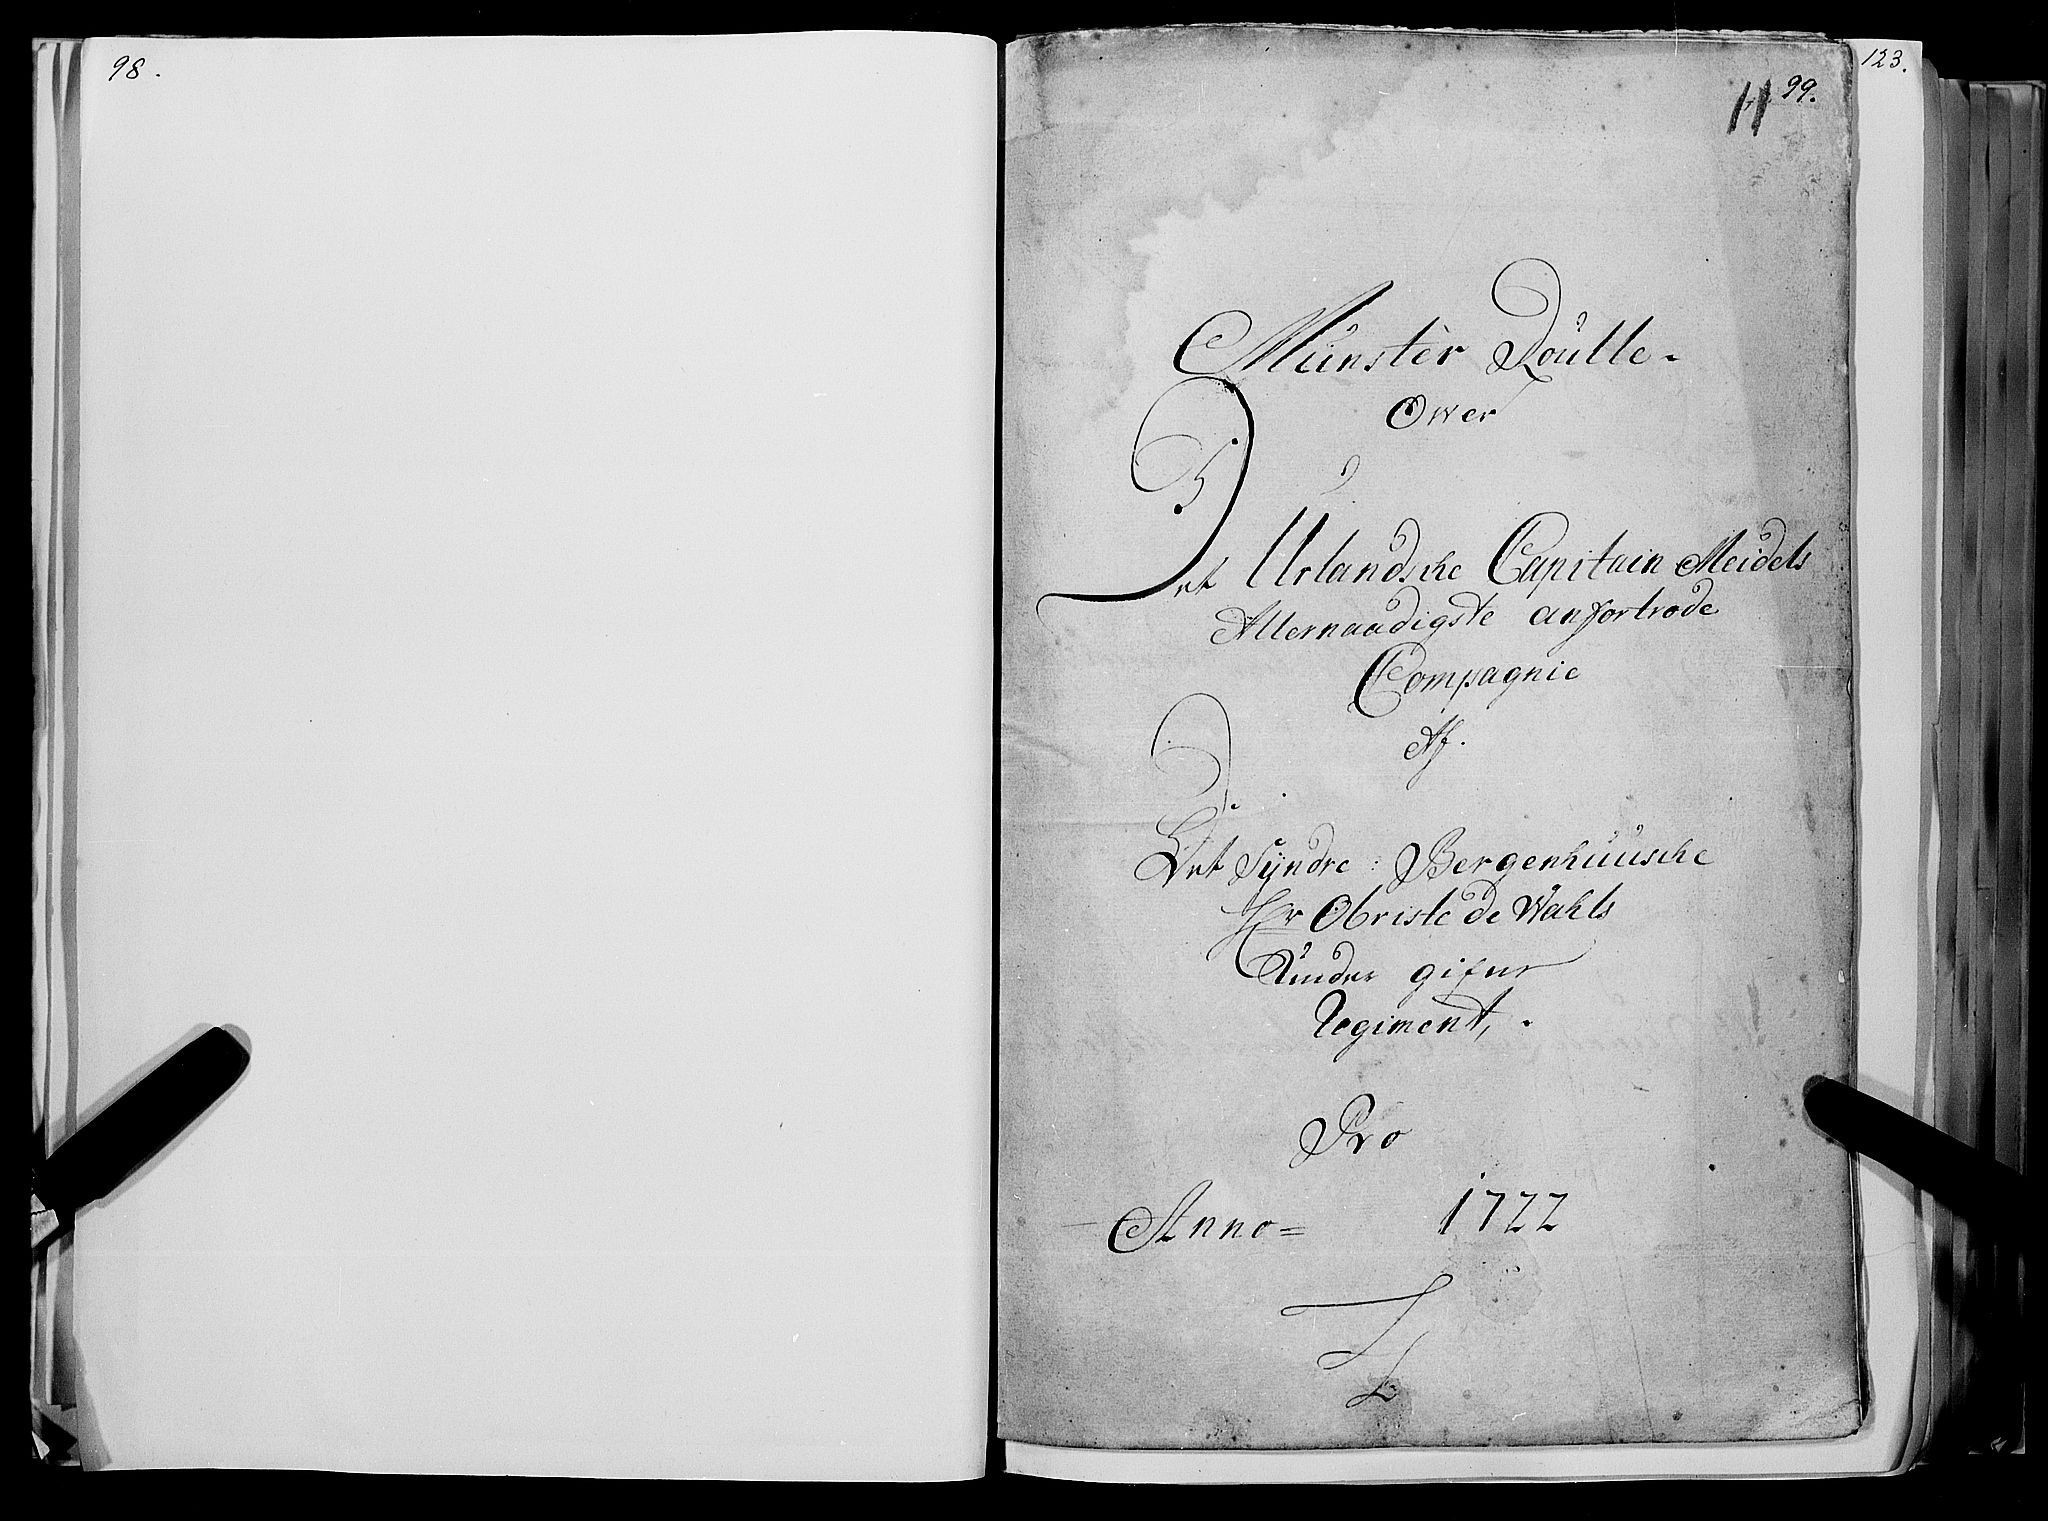 98.
123.
11 99.
Münster Roulle.
Ower
Det Urlandsche Capitain Meidels
Allernaadigste anfortrode
Compagnie
Af.
Det Syndre: Bergenhuusche
Hr Obriste de Wahls
Under
Regiment,.
Pro
Anno= 1722